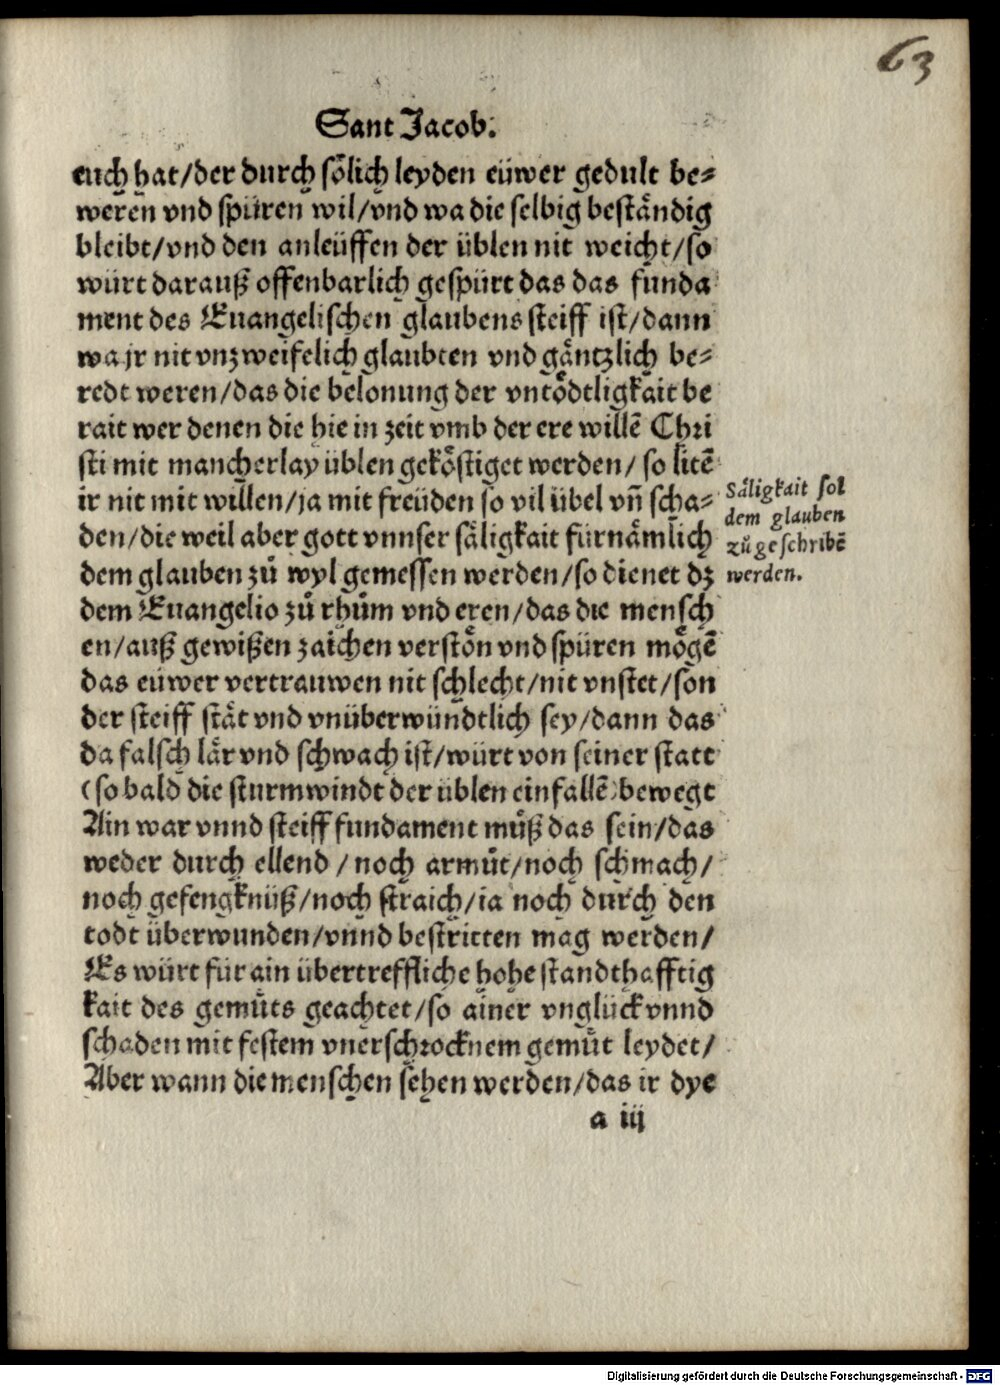 63
Sant Jacob.
euch hat/der durch soͤlich leyden eüwer gedult be⸗
weren vnd spüren wil/vnd wa die selbig bestaͤndig
bleibt/vnd den anleüffen der üblen nit weicht/so
würt darauß offenbarlich gespürt das das funda
ment des Euangelischen glaubens steiff ist/dann
wa jr nit vnzweifelich glaubten vnd gaͤntzlich be⸗
redt weren/das die belonung der vntoͤdtligkait be
rait wer denen die hie in zeit vmb der ere willē Chri
sti mit mancherlay üblen gekoͤstiget werden/ so litē
ir nit mit willen/ja mit freüden so vil übel vn̄ scha⸗
den/die weil aber gott vnnser saͤligkait fürnaͤmlich
dem glauben zuͦ wyl gemessen werden/so dienet dz
dem Euangelio zuͦ rhuͦm vnd eren/das die mensch
en/auß gewißen zaichen verstoͤn vnd spüren moͤgē
das eüwer vertrauwen nit schlecht/nit vnstet/son
der steiff staͤt vnd vnüberwündtlich sey/dann das
da falsch laͤr vnd schwach ist/würt von seiner statt
(so bald die sturmwindt der üblen einfallē)bewegt
Ain war vnnd steiff fundament muͦß das sein/das
weder durch ellend /noch armuͦt/noch schmach/
noch gefengknüß/noch straich/ia noch durch den
todt überwunden/vnnd bestritten mag werden/
Es würt für ain übertreffliche hohe standthafftig
kait des gemuͤts geachtet/so ainer vnglück vnnd
schaden mit festem vnerschrocknem gemuͤt leydet/
Aber wann die menschen sehen werden/das ir dye
a iij
Saͤligkait sol
dem glauben
zuͦ geschribē
werden.
Digitalisierung gefördert durch die Deutsche Forschungsgemeinschaft - DFG